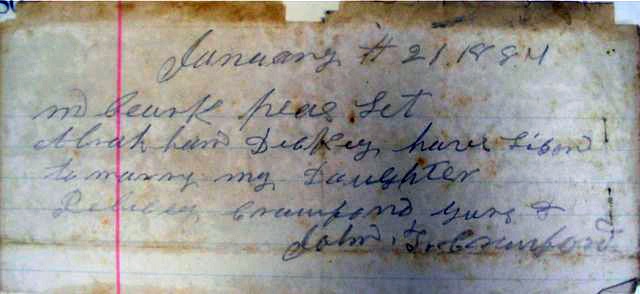 January # 21 1884
m Cleark pleas Let
Abraham Dickey have Lison
to marry my Daughter
Crawford yurs
John Crawford